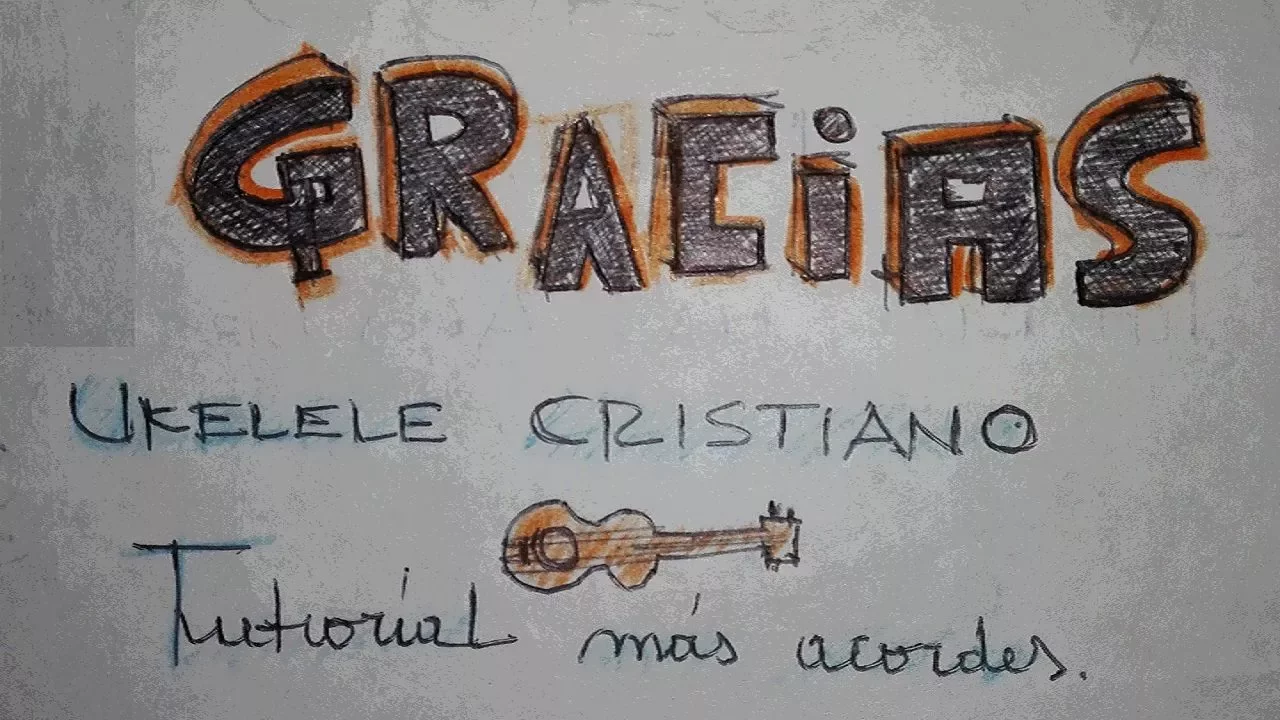 GRACiAS
UKELELE CRISTIANO
Tutorial más acordes.